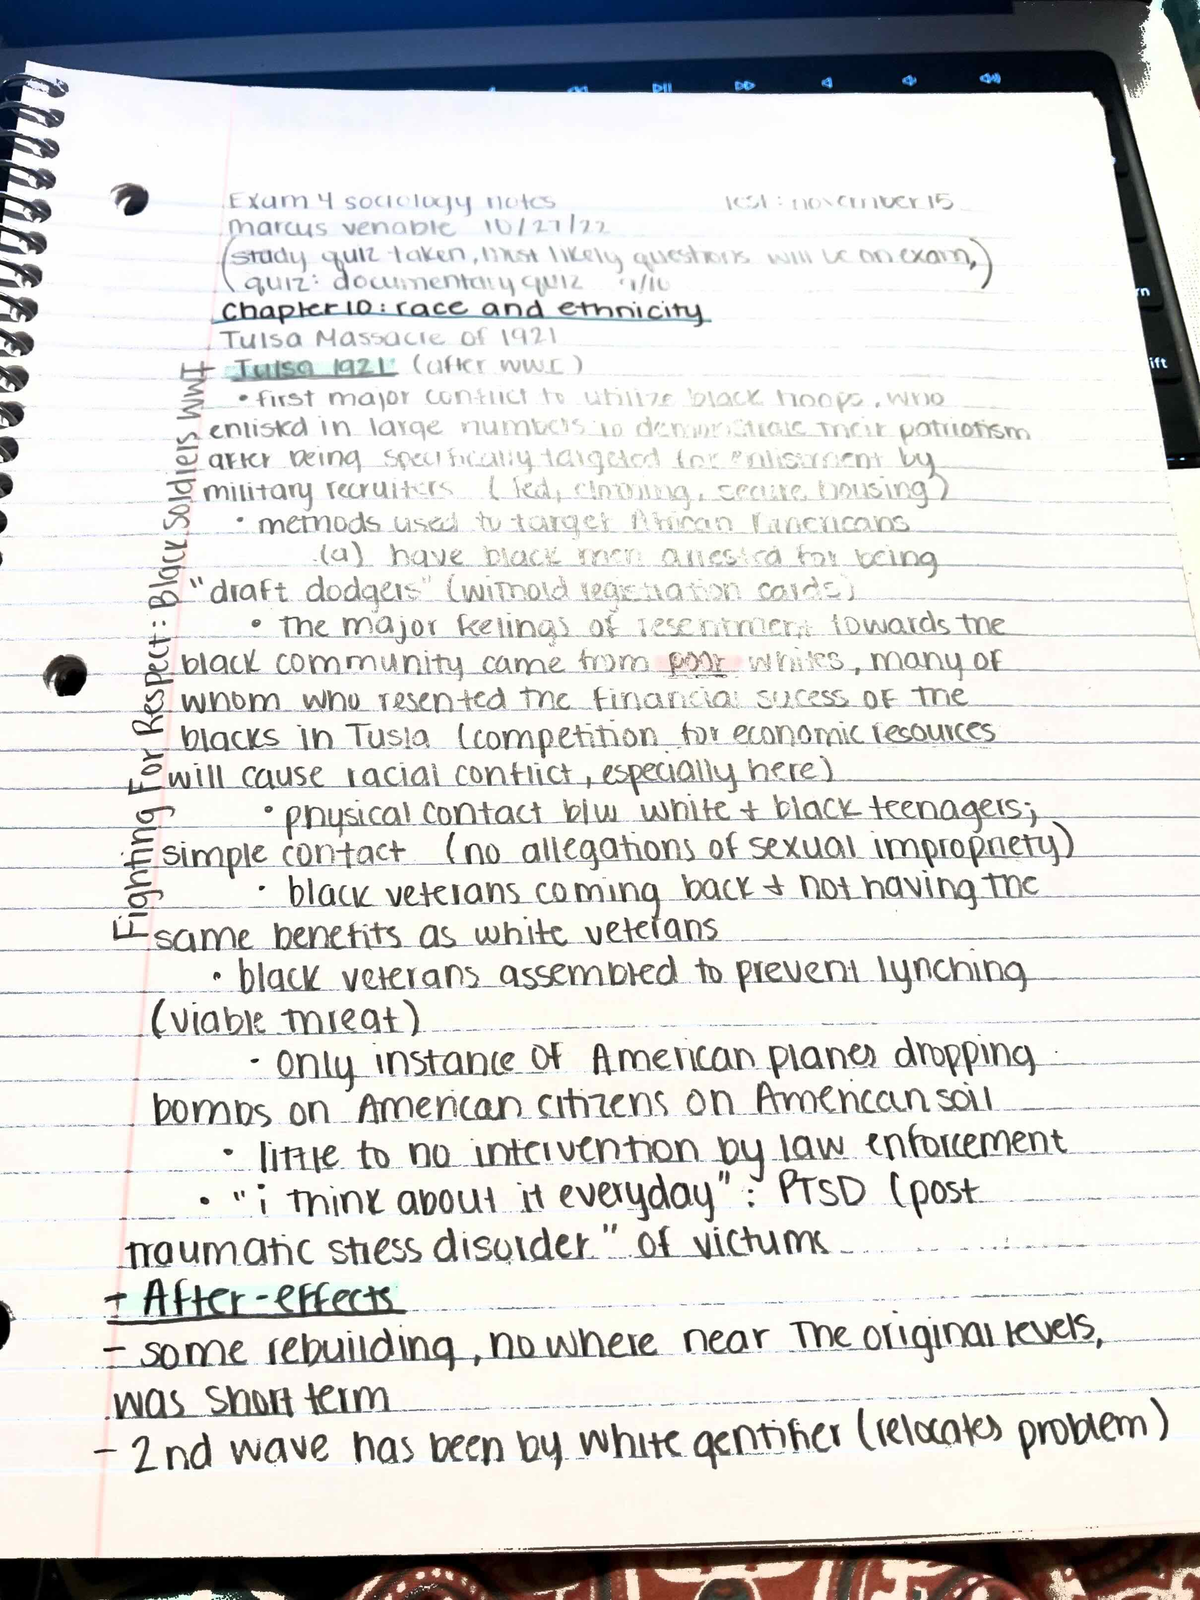 Exam 4 sociology notes test: november 15
marcus venable 10/27/22
(study quiz taken, most likely questions will be on exam,)
quiz: documentary quiz
Chapter 10: race and ethnicity
Tulsa Massacre of 1921
Tulsa 1921 (after WWI)
• first major conflict to utilize black troops, who
enlisted in large numbers to demonstrate their patriotism
after being specifically targeted for enlistment by
military recruiters (fed, clothing, secure housing)
• methods used to target African Americans
(a) have black men arrested for being
"draft dodgers" (withold registration cards)
• the major feelings of resentment towards the
black community came from poor whites, many of
whom who resented the financial sucess of the
blacks in Tusla (competition for economic resources
will cause racial conflict, especially here)
• physical contact b/w white + black teenagers;
simple contact (no allegations of sexual impropriety)
• black veterans coming back + not having the
same benefits as white veterans
• black veterans assembled to prevent lynching
(viable threat)
• only instance of American planes dropping
bombs on American citizens on American soil
• little to no intervention by law enforcement
• "i think about it everyday" : PTSD (post
traumatic stress disorder" of victums
- After-effects
- some rebuilding, no where near the original levels,
was short term
- 2nd wave has been by white gentifier (relocates problem)
Fighting For Respect: Black Soldiers WWI